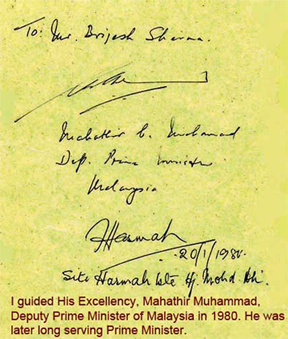 To: Mr. Brijesh Sharma.
Mahathir b. Mohamad
Dep. Prime Minister
Malaysia
Hasmah
20/1/1980.
Siti Hasmah bte Hj. Mohd Ali.
I guided His Excellency, Mahathir Muhammad,
Deputy Prime Minister of Malaysia in 1980. He was
later long serving Prime Minister.